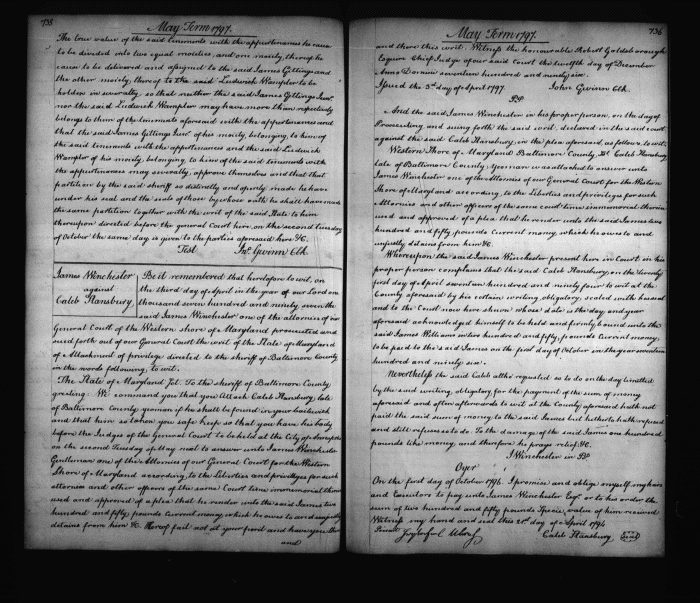 735
May Term 1797.
The true value of the said tenements with the appurtenances he cause
to be divided into two equal moieties, and one moiety thereof he
cause to be delivered and assigned to the said James Gittings and
the other moiety thereof to the said Ludwick Wampler to be
holden in severalty so that neither the said James Gittings Junr.
nor the said Ludwick Wampler may have more than respectively
belongs to them of the tenements aforesaid with the appurtenances and
that the said James Gittings Junr. of his moiety, belonging to him of
the said tenements with the appurtenances and the said Ludwick
Wampler of his moiety, belonging to him of the said tenements with
the appurtenances may severally approve themselves and that that
partition by the said sheriff so distinctly and openly made he have
under his seal and the seals of those by whose oath he shall have made
the same partition together with the writ of the said State to him
thereupon directed before the general Court here on the second tuesday
of October the same day is given to the parties aforesaid here &c.
Test Jno. Gwinn Clk.
James Winchester
against
Caleb Hansbury
Be it remembered that heretofore to wit, on
the third day of april in the year of our Lord one
thousand seven hundred and ninety seven the
said James Winchester one of the attornies of our
General Court of the Western shore of Maryland prosecuted and
sued forth out of our General Court the writ of the State of Maryland
of Attachment of privilege directed to the sheriff of Baltimore County
in the words following, to wit.
The State of Maryland Jct. To the sheriff of Baltimore County
greeting: We command you that you Attach Caleb Hansbury, late
of Baltimore County yeoman if he shall be found in your bailiwick
and that him so taken you safe keep so that you have his body
before the Judges of the General Court to be held at the City of Annapolis
on the second Tuesday of May next to answer unto James Winchester
Gentleman one of the Attornies of our General Court for the Western
Shore of Maryland according to the Liberties and privileges for such
attornies and other officers of the same Court time immemorial therein
used and approved of a plea that he render unto the said James two
hundred and fifty pounds Current money which he owes to and unjustly
detains from him &c. Hereof fail not at your peril and have you then
and
736
May Term 1797.
and there this writ. Witness the honourable Robert Goldsborough
Esquire Chief Judge of our said Court the twelfth day of December
Anno Domini seventeen hundred and ninety six.
Issued the 3d day of April 1797. John Gwinn Clk.
And the said James Winchester in his proper person, on the day of
Prosecuting and suing forth the said writ, declared in the said court
against the said Caleb Hansbury, in the plea aforesaid, as follows, to wit.
Western Shore of Maryland Baltimore County, Sct. Caleb Hansbury
late of Baltimore County, Yeoman was attached to answer unto
James Winchester one of the Attornies of our General Court for the Western
Shore of Maryland according to the Liberties and privileges for such
Attornies and other officers of the same court time immemorial therein
used and approved of a plea that he render unto the said James two
hundred and fifty pounds Current money, which he owes to and
unjustly detains from him &c.
Whereupon the said James Winchester present here in Court in his
proper person complains that the said Caleb Hansbury, on the twenty
first day of April seventeen hundred and ninety four to wit at the
County aforesaid by his certain writing, obligatory, sealed with his seal
and to the Court now here shewn whose date is the day and year
aforesaid acknowledged himself to be held and firmly bound unto the
said James Williams in two hundred and fifty, pounds Current money,
to be paid to the said James on the first day of October in the year seventeen
hundred and ninety six.
Nevertheless the said Caleb altho requested so to do on the day limitted
by the said writing, obligatory for the payment of the sum of money
aforesaid and often afterwards to wit at the County aforesaid hath not
paid the said sum of money to the said James but hitherto hath refused
and still refuses to do. To the damage of the said James one hundred
pounds like money, and therefore he prays relief &c.
J. Winchester in PP
Oyer
On the first day of October 1796. I promise and oblige myself my heirs
and Executors to pay unto James Winchester Esqr. or to his order the
sum of two hundred and fifty pounds Specie, value of him received
Witness my hand and seal this 21st day of April 1794
Caleb Hansbury Seal